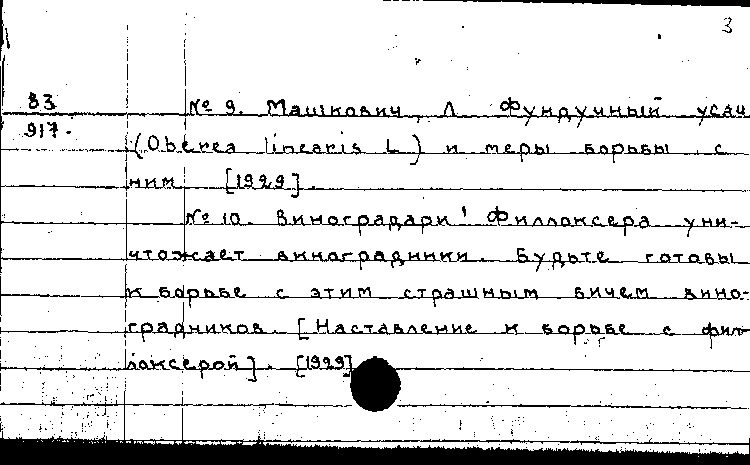 3
83
917.
№ 9. Машкович, Л Фундучный усач
(Oberea linearis L) и меры борьбы с
ним [1929].
№ 10. Виноградари! Филлоксера уни-
чтожает виноградники. Будьте готовы
к борьбе с этим страшным бичем вино-
градников. [Наставление к борьбе с фил-
локсерой]. [1929]